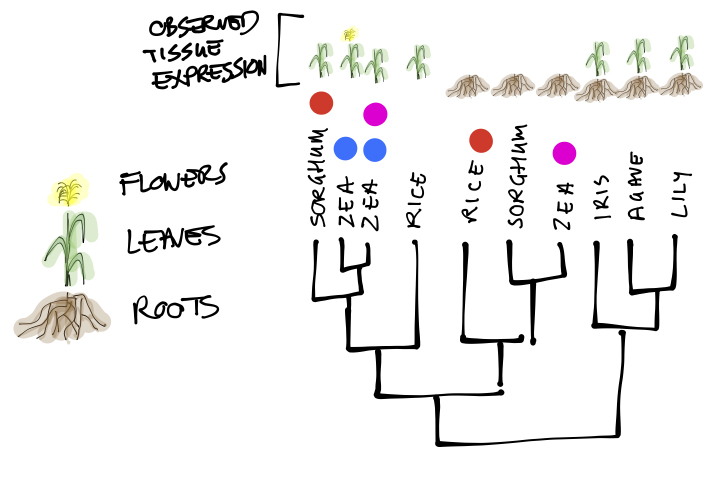 OBSERVED
TISSUE
EXPRESSION
FLOWERS
LEAVES
ROOTS
SORGHUM
ZEA
ZEA
RICE
RICE
SORGHUM
ZEA
IRIS
AGAVE
LILY